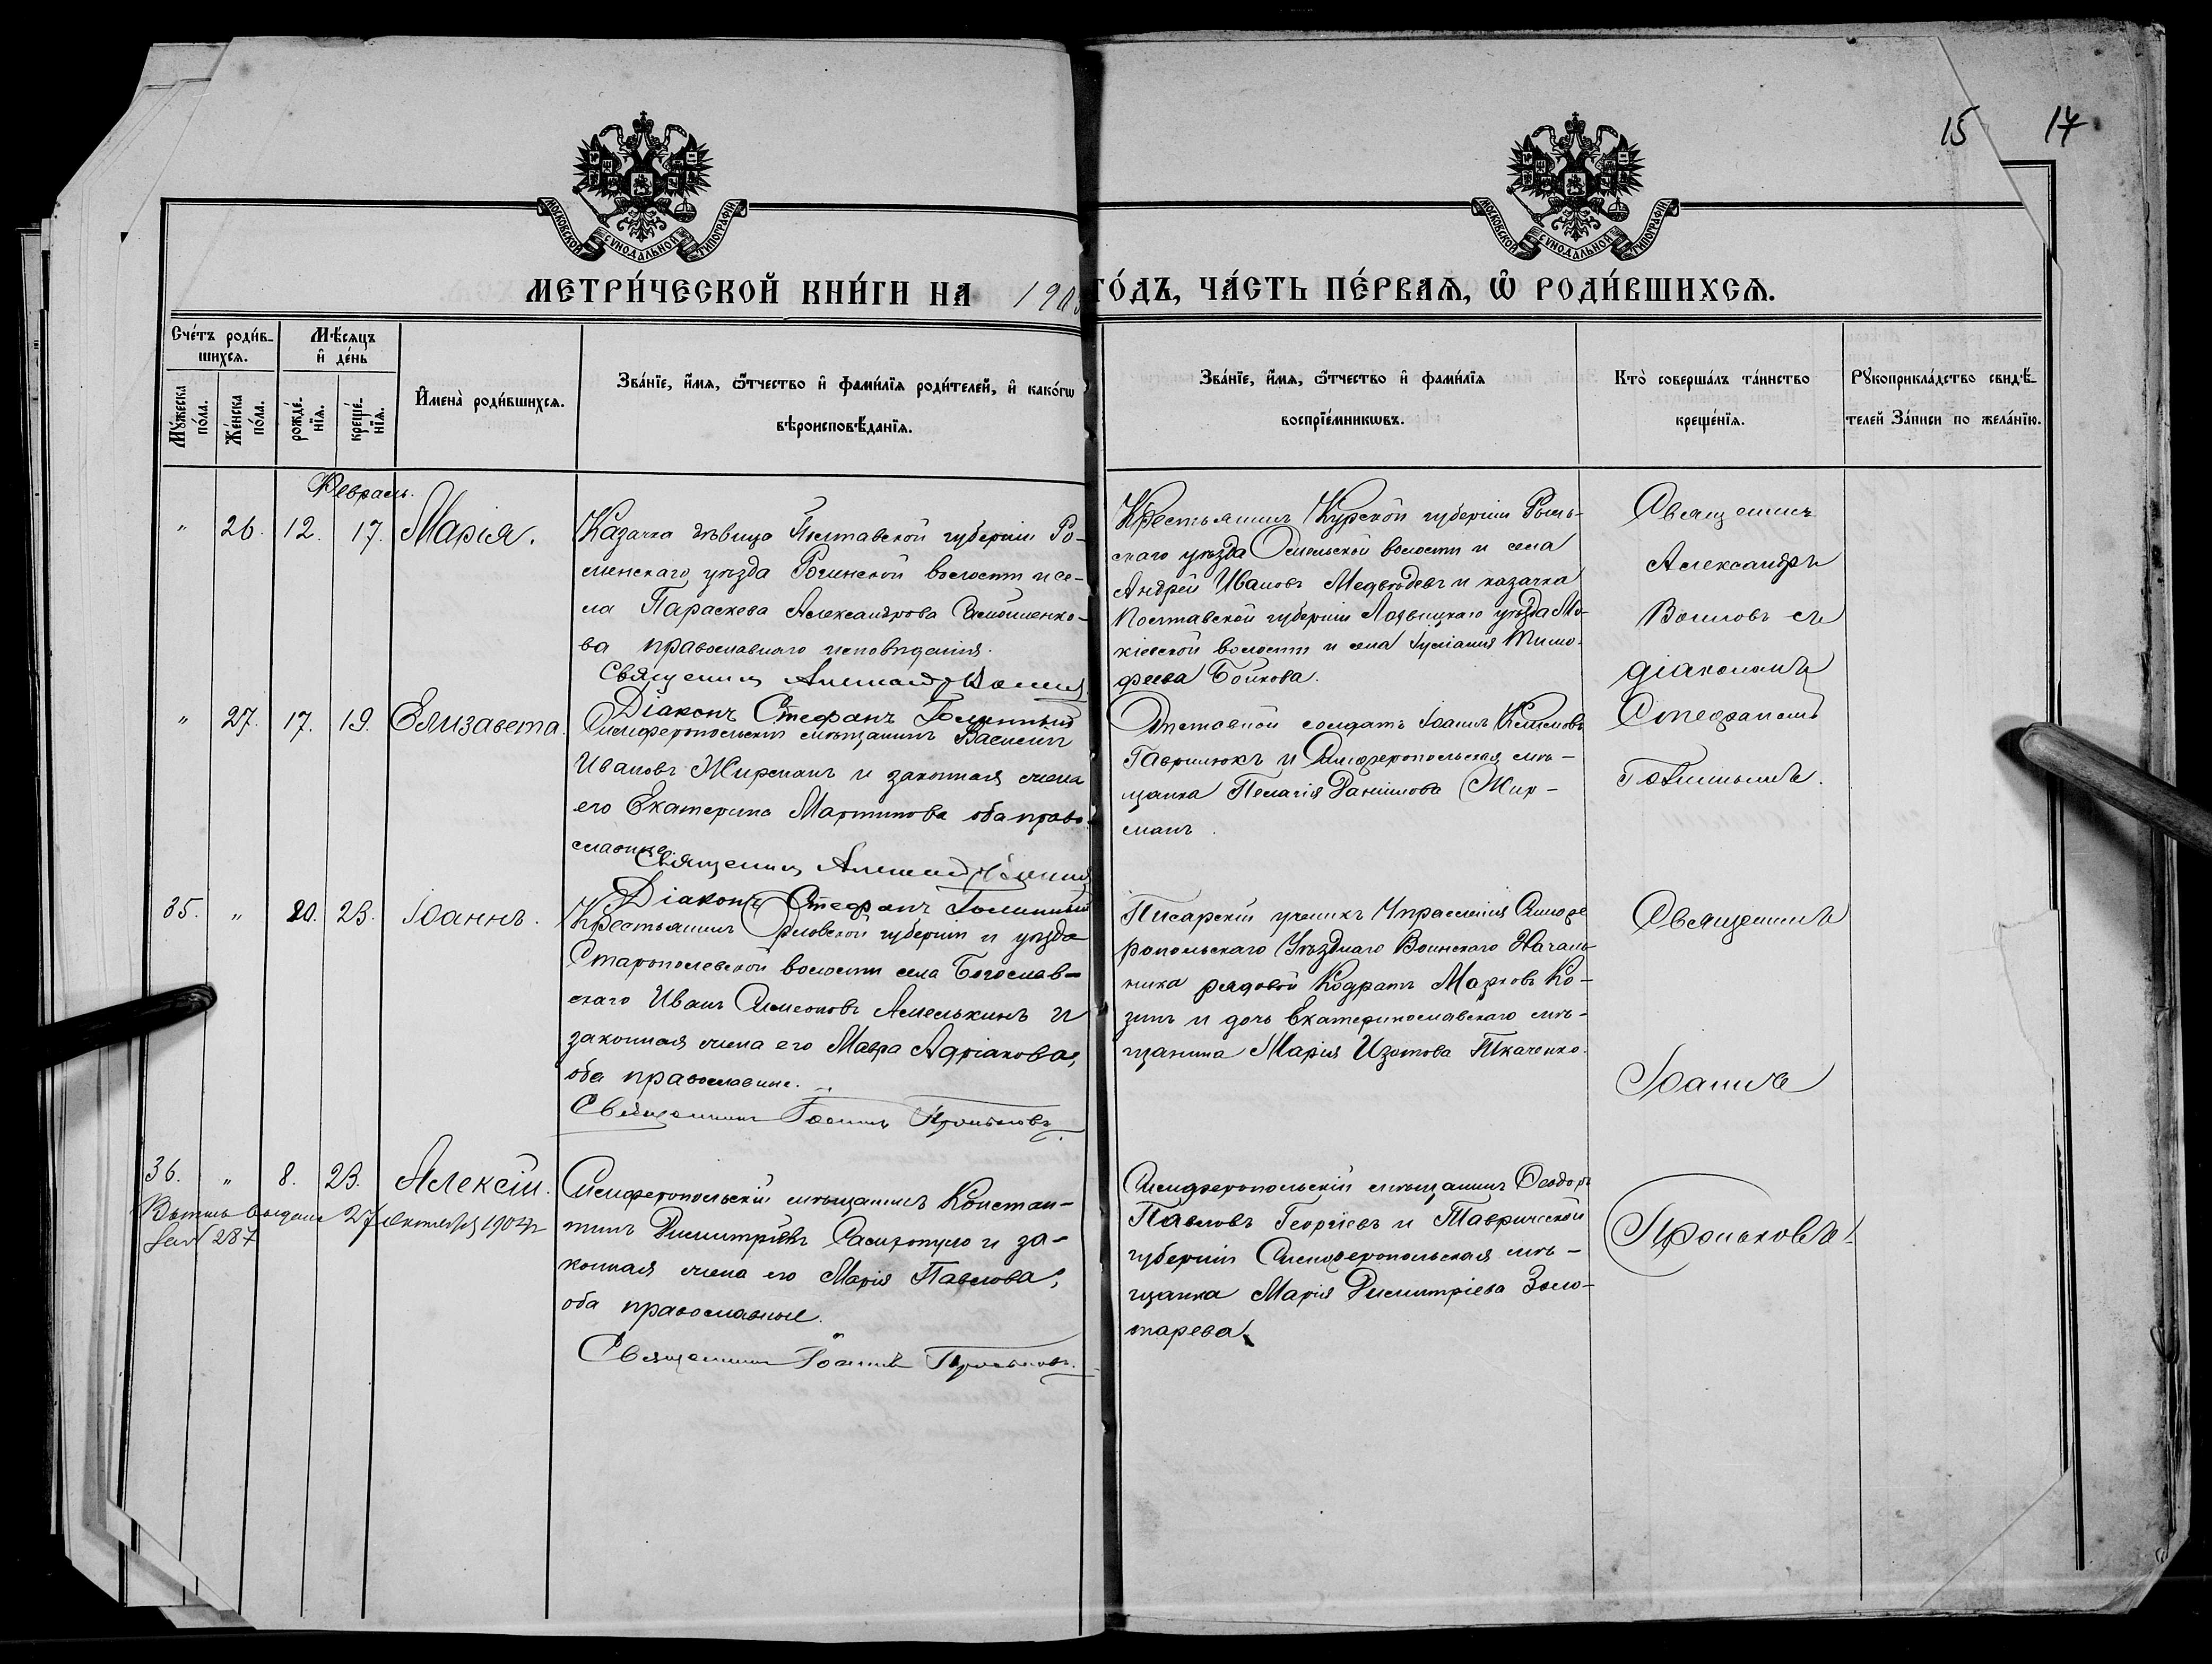 15 14
МОСКОВСКОЙ СУНОДАЛЬНОЙ ТИПОГРАФІИ
МОСКОВСКОЙ СУНОДАЛЬНОЙ ТИПОГРАФІИ
МЕТРИ́ЧЕСКОЙ КНИ́ГИ НА 190
ГО́ДЪ, ЧА́СТЬ ПЕ́РВАѦ, Ѡ҆ РОДИ́ВШИХСѦ.
Сче́тъ роди́в-
шихсѧ.
Мꙋ́жеска по́ла.
Же́нска по́ла.
Мѣ́сѧцъ
и҆ де́нь
рожде́-
нїѧ.
креще́-
нїѧ.
И҆мена̀ роди́вшихсѧ.
Зва́нїе, и҆́мѧ, ѻ҆́тчество и҆ фами́лїѧ роди́телей, и҆ како́гѡ
вѣроисповѣ́данїѧ.
Зва́нїе, и҆́мѧ, ѻ҆́тчество и҆ фами́лїѧ
воспрїе́мникѡвъ.
Кто̀ соверша́лъ та́инство
креще́нїѧ.
Рꙋкоприкла́дство свидѣ́-
телей За́писи по жела́нїю.
Февраль.
" 26. 12. 17. Марія.
Казачка дѣвица Полтавской губерніи Ро-
менскаго уѣзда Рогинской волости и се-
ла Параскева Александрова
ва православнаго исповѣданія.
Священникъ Александръ
Діаконъ Стефанъ
Крестьянинъ Курской губерніи Рыль-
скаго уѣзда волости и села
Андрей Ивановъ Медвѣдевъ и казачка
Полтавской губерніи уѣзда Мо-
кіевской волости и села Іуліанія Тимо-
феева Бойкова.
Священникъ
Александръ
съ
діакономъ
Стефаномъ
" 27. 17. 19. Елизавета.
Симферопольскій мѣщанинъ Василій
Ивановъ Жирманъ и законная жена
его Екатерина Мартинова оба право-
славные.
Священникъ Александръ
Діаконъ Стефанъ
Отставной солдатъ Іоаннъ
Гаврилюкъ и Симферопольская мѣ-
щанка Пелагія Даніилова Жир-
манъ.
35. " 20. 23. Іоаннъ.
Крестьянинъ Орловской губерніи и уѣзда
Старопольевской волости села Богослав-
скаго Иванъ Симеоновъ Амелькинъ и
законная жена его Мавра Адріанова,
оба православные.
Священникъ Іоаннъ Проньковъ
Писарскій ученикъ Управленія Симфе
ропольскаго Уѣзднаго Воинскаго Началь-
ника рядовой Кодратъ Марковъ Ко-
зинъ и дочь Екатеринославскаго мѣ-
щанина Марія Изотова Ткаченко.
Священникъ
Іоаннъ
Проньковъ.
36. " 8. 23. Алексій.
Выпись выдана 27 октября 1904 г
287
Симферопольскій мѣщанинъ Констан-
тинъ Димитріевъ и за-
конная жена его Марія Павлова,
оба православные.
Священникъ Іоаннъ Проньковъ.
Симферопольскій мѣщанинъ Ѳеодоръ
Павловъ Георгіевъ и Таврической
губерніи Симферопольская мѣ-
щанка Марія Димитріева Золо-
тарева.